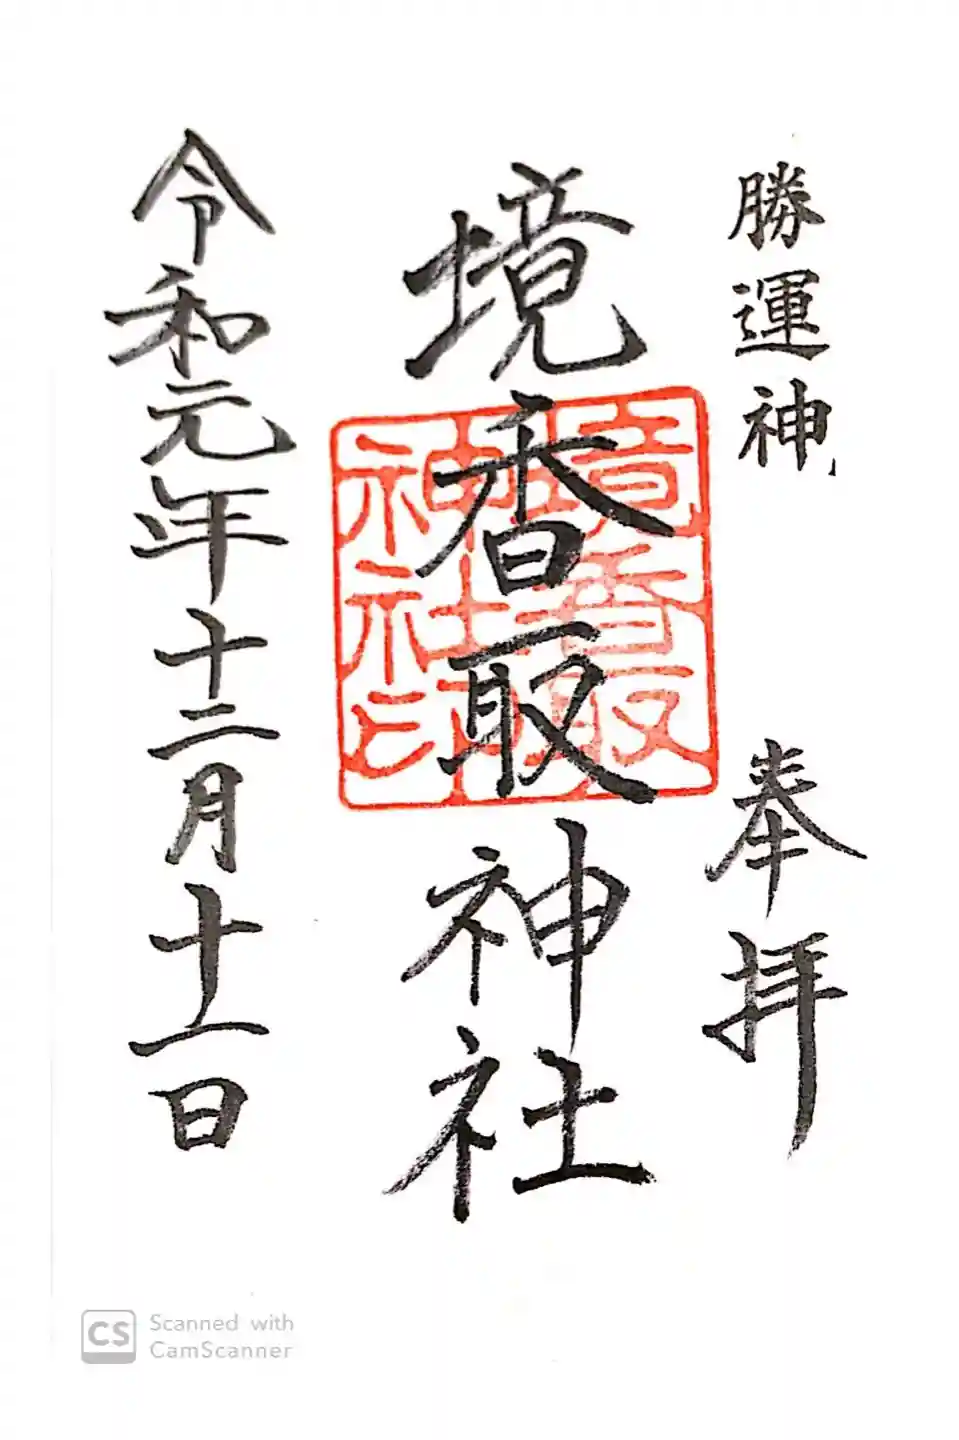 勝運神
奉拝
境香取神社
境香取
神社印
令和元年十二月十一日
Scanned with
CamScanner